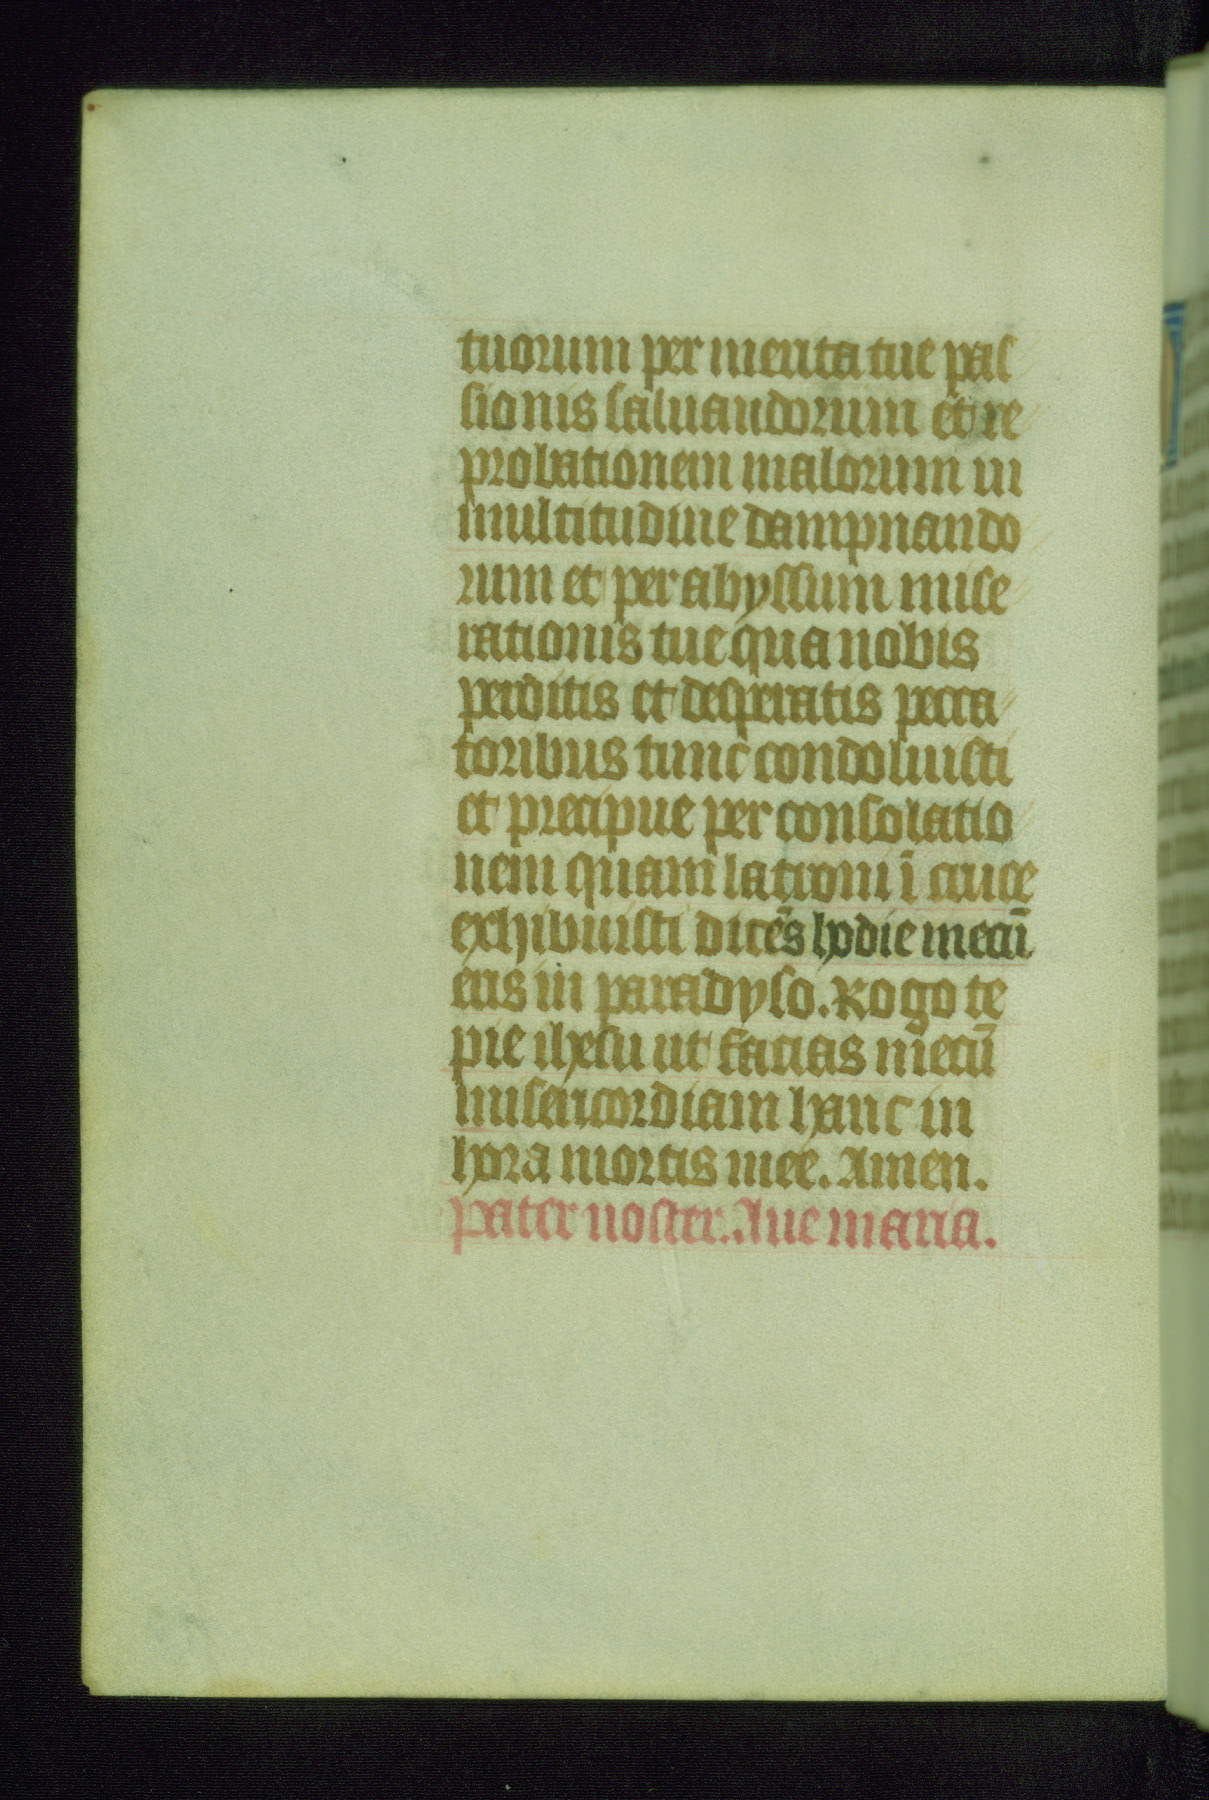 tuorum per merita tue pas
sionis saluandorum et re
probationem malorum in
multitudine dampnando
rum et per abyssum mise
rationis tue qua nobis
perditis et desperatis pecca
toribus tunc condoluisti
et precipue per consolatio
nem quam latroni ī cruce
exhibuisti dicēs hodie mecū
eris in paradyso. Rogo te
pie ihesu ut facias mecū
misericordiam hanc in
hora mortis mee. Amen.
Pater noster. Aue maria.